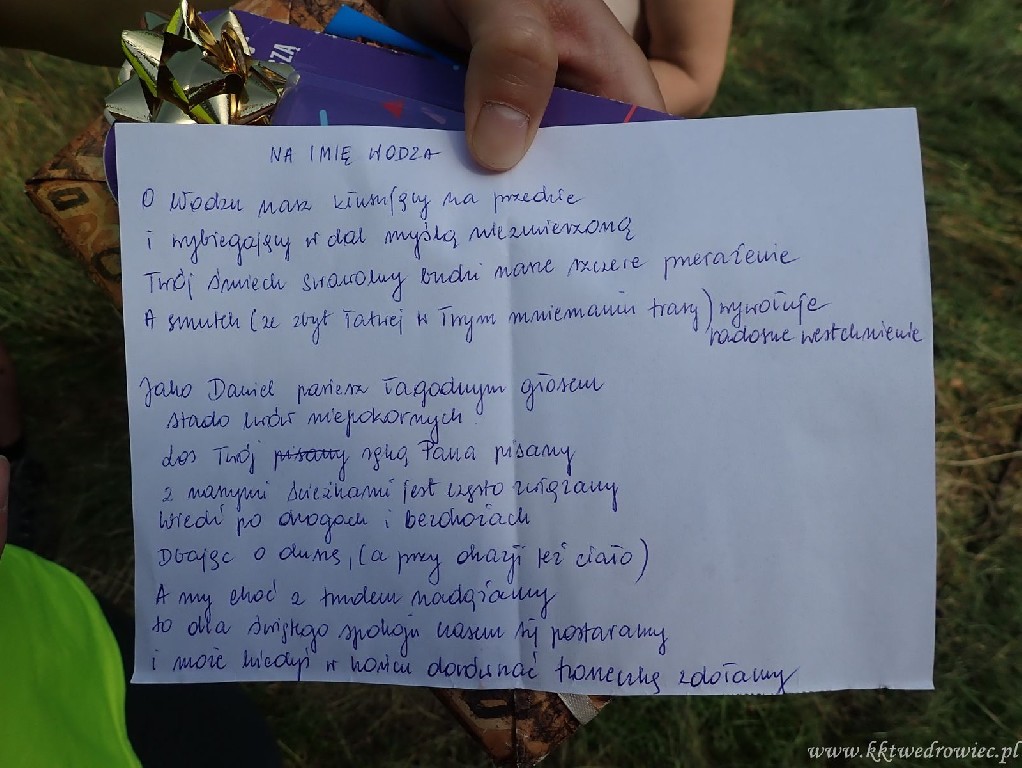 CZĄ
NA IMIĘ WODZA
O Wodzu nasz kłusujący na przedzie
i wybiegający w dal myślą niezmierzoną
Twój śmiech swawolny budzi nasze szczere przerażenie
A smutek (ze zbyt łatwej w Twym mniemaniu trasy) wywołuje
radosne westchnienie
Jako Daniel pasiesz łagodnym głosem
stado lwów niepokornych
Los Twój pisany ręką Pana pisany
z naszymi ścieżkami jest często związany
Wiedź po drogach i bezdrożach
Dbając o duszę, (a przy okazji też ciało)
A my choć z trudem nadążamy
to dla świętego spokoju czasem się postaramy
i może kiedyś w końcu dorównać troneczkę zdołamy
www.kktwedrowiec.pl